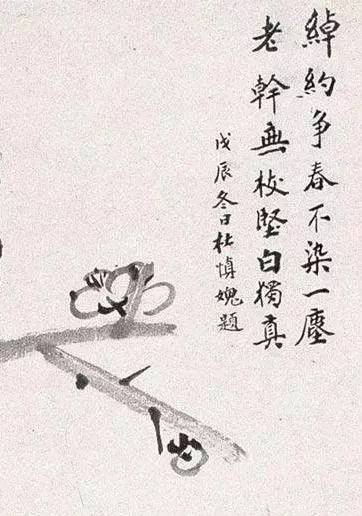 綽約争春不染一塵
老幹無枝堅白獨真
戊辰冬日杜慎媿題